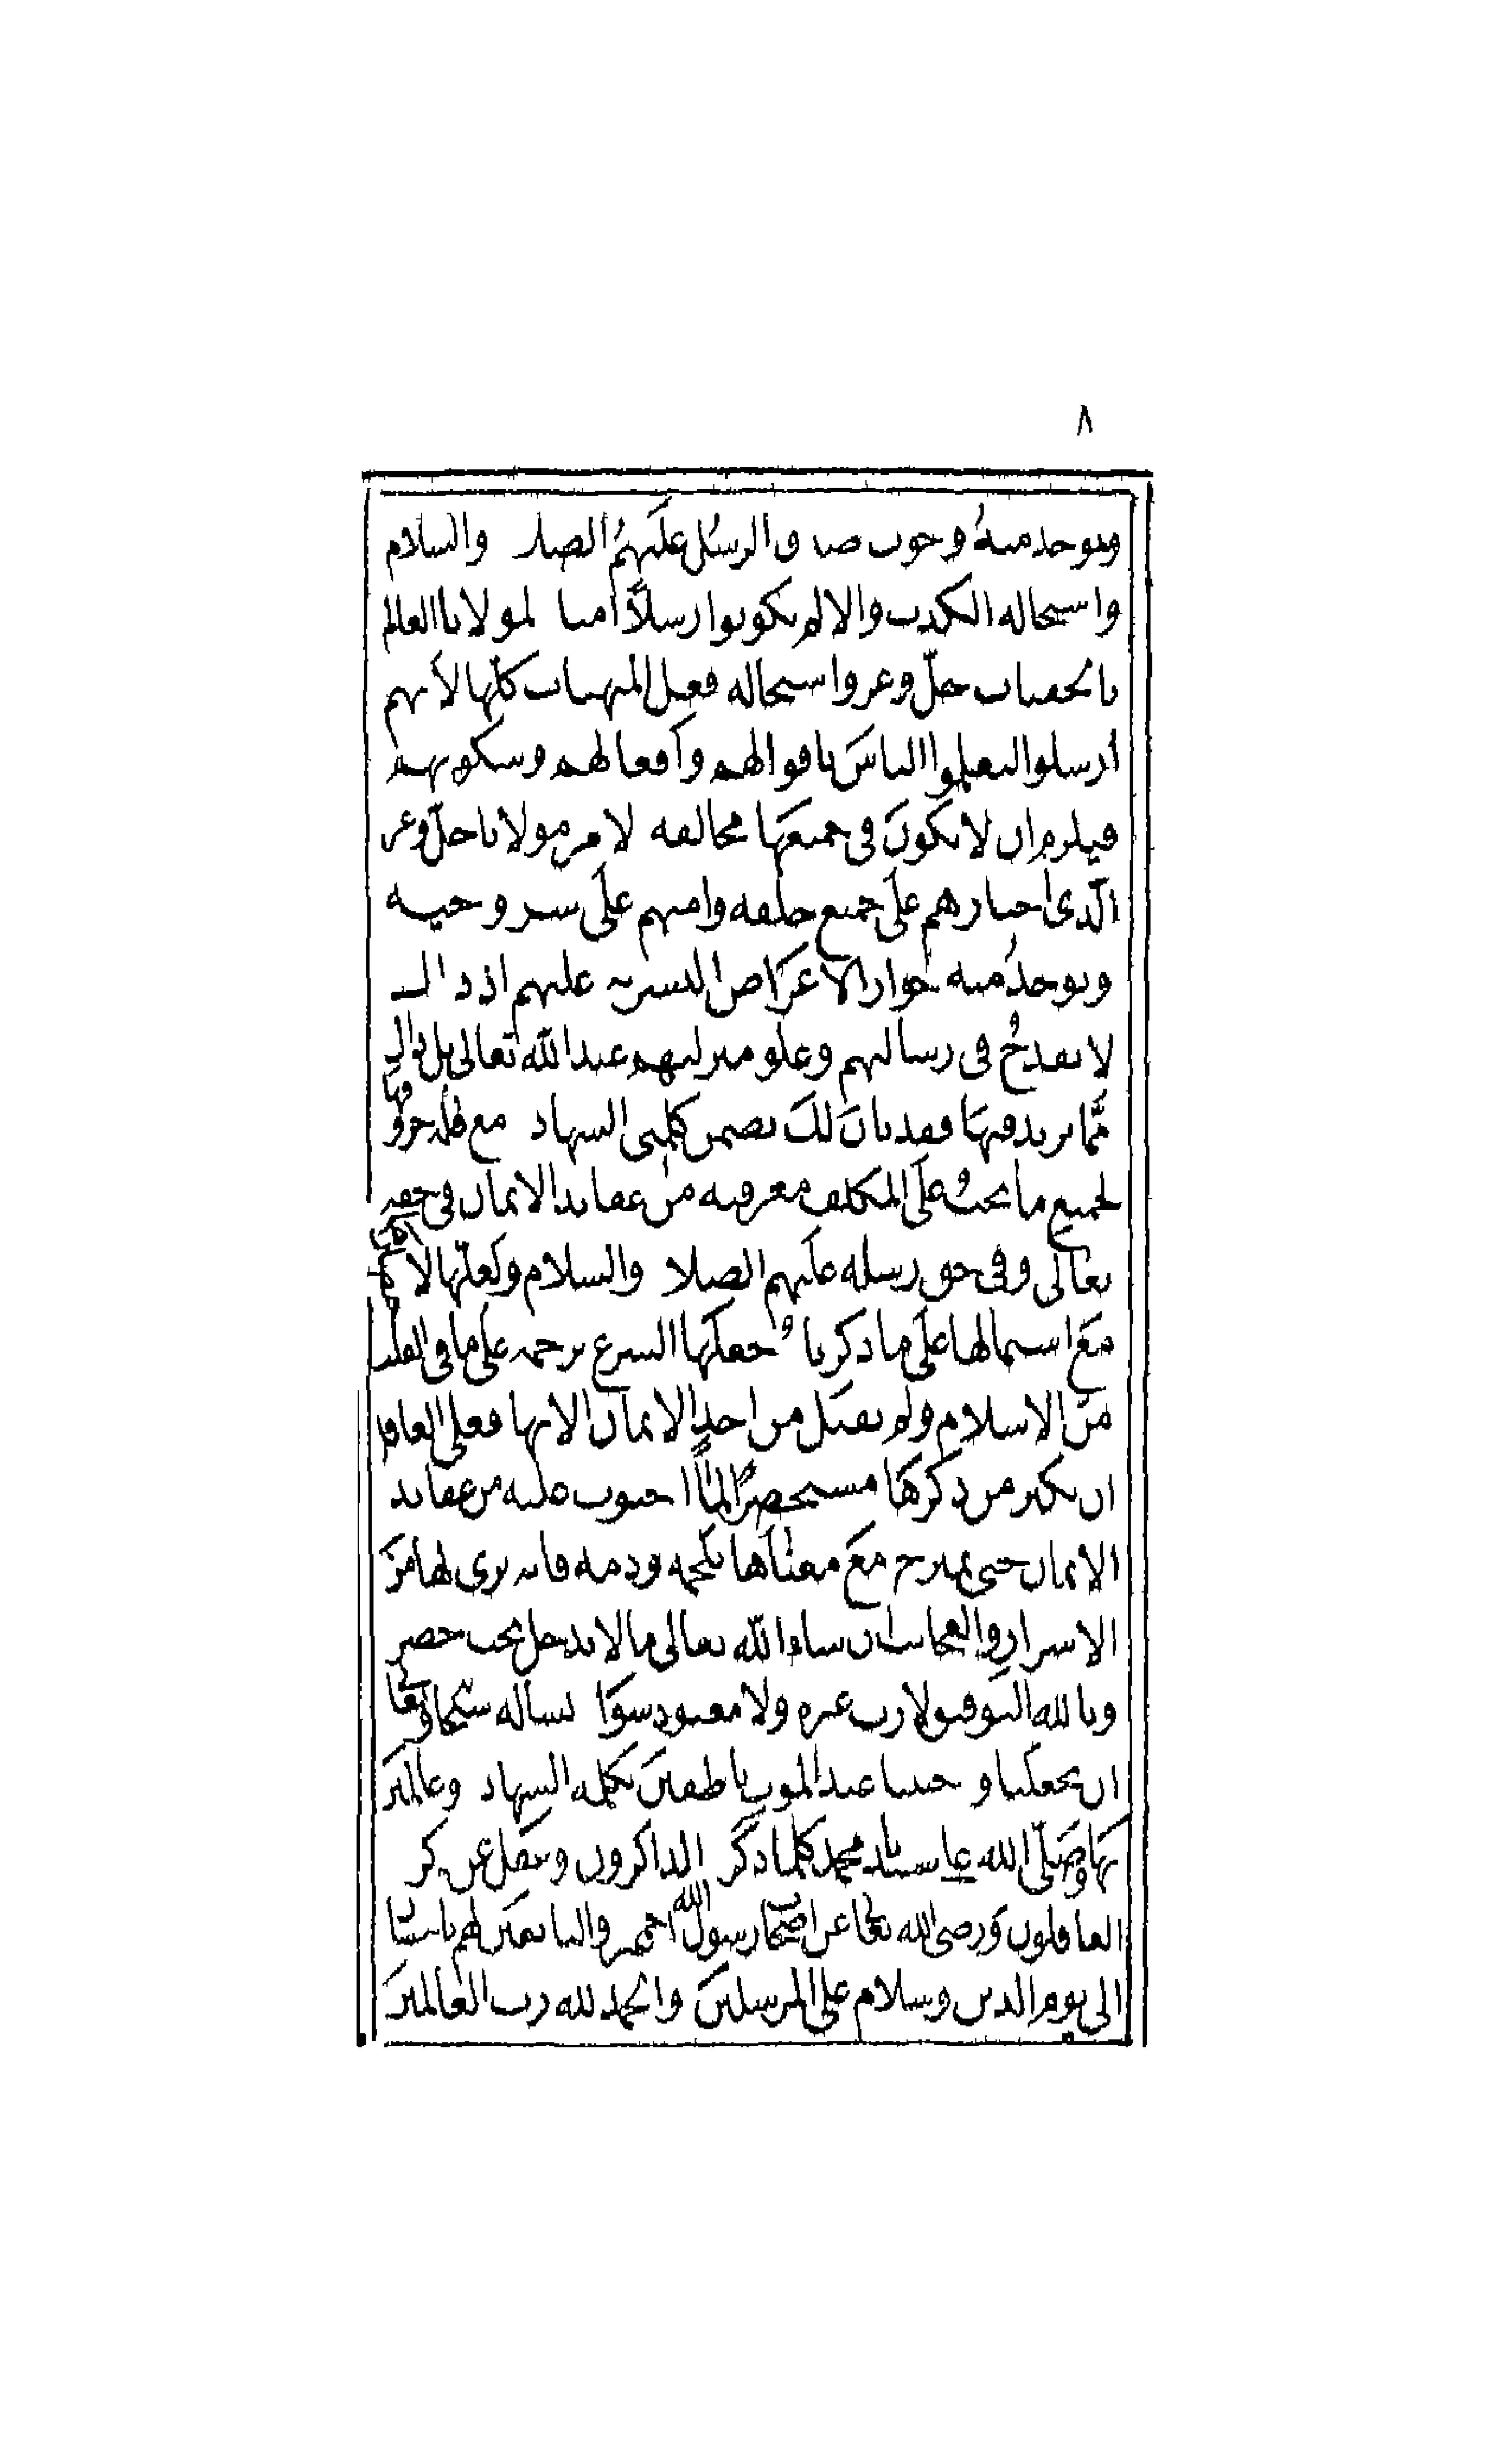 ٨
ويوخذ منه وجوب صدق الرسل عليهم الصلاة والسلام
واستحالة الكذب والا لم يكونوا رسلا امنا لمولانا العالم
بالخفيات جل وعز واستحالة فعل المنهيات كلها لانهم
ارسلوا ليعلموا الناس باقوالهم وافعالهم وسكوتهم
فيلزم ان لا يكون في جميعها مخالفة لامر مولانا جل وعز
الذي اختارهم على جميع خلقه وامنهم على سر وحيه
ويوخذ منه جواز الاعراض البشرية عليهم اذ ذاك
لا يقدح في رسالتهم وعلو منزلتهم عند الله تعالى بل ذاك
مما يزيد فيها فقد بان لك تضمن كلمتي الشهادة مع قلة حروفها
لجميع ما يجب على المكلف معرفته من عقايد الايمان في حقه
تعالى وفي حق رسله عليهم الصلاة والسلام ولعلها
مع اشتمالها على ما ذكرنا جعلها الشرع ترجمة على ما في القلب
من الاسلام ولم يقبل من احد الايمان الا بها فعلى العاقل
ان يكثر من ذكرها مستحضرا لما احتوت عليه من عقايد
الايمان حتى تمتزج مع معناها بلحمه ودمه فانه يرى لها من
الاسرار والعجايب ان شاء الله تعالى ما لا يدخل تحت حصر
وبالله التوفيق لا رب غيره ولا معبود سواه نساله سبحانه وتعالى
ان يجعلنا واحبتنا عند الموت ناطقين بكلمة الشهادة وعالمين
بها وصلى الله على سيدنا محمد كلما ذكره الذاكرون وغفل عن ذكره
الغافلون ورضي الله تعالى عن اصحاب رسول الله اجمعين والتابعين لهم باحسان
الى يوم الدين وسلام على المرسلين والحمد لله رب العالمين